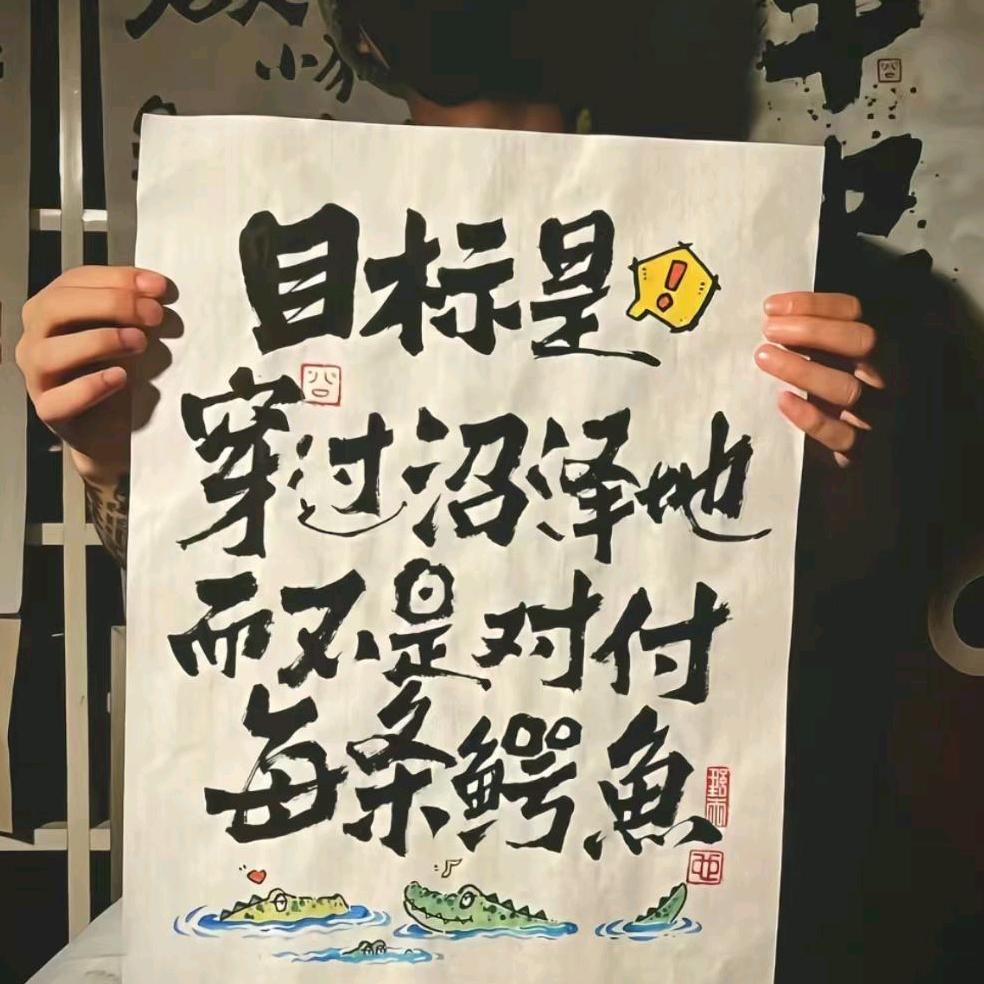 目标是!
穿过沼泽地
而不是对付
每条鳄鱼